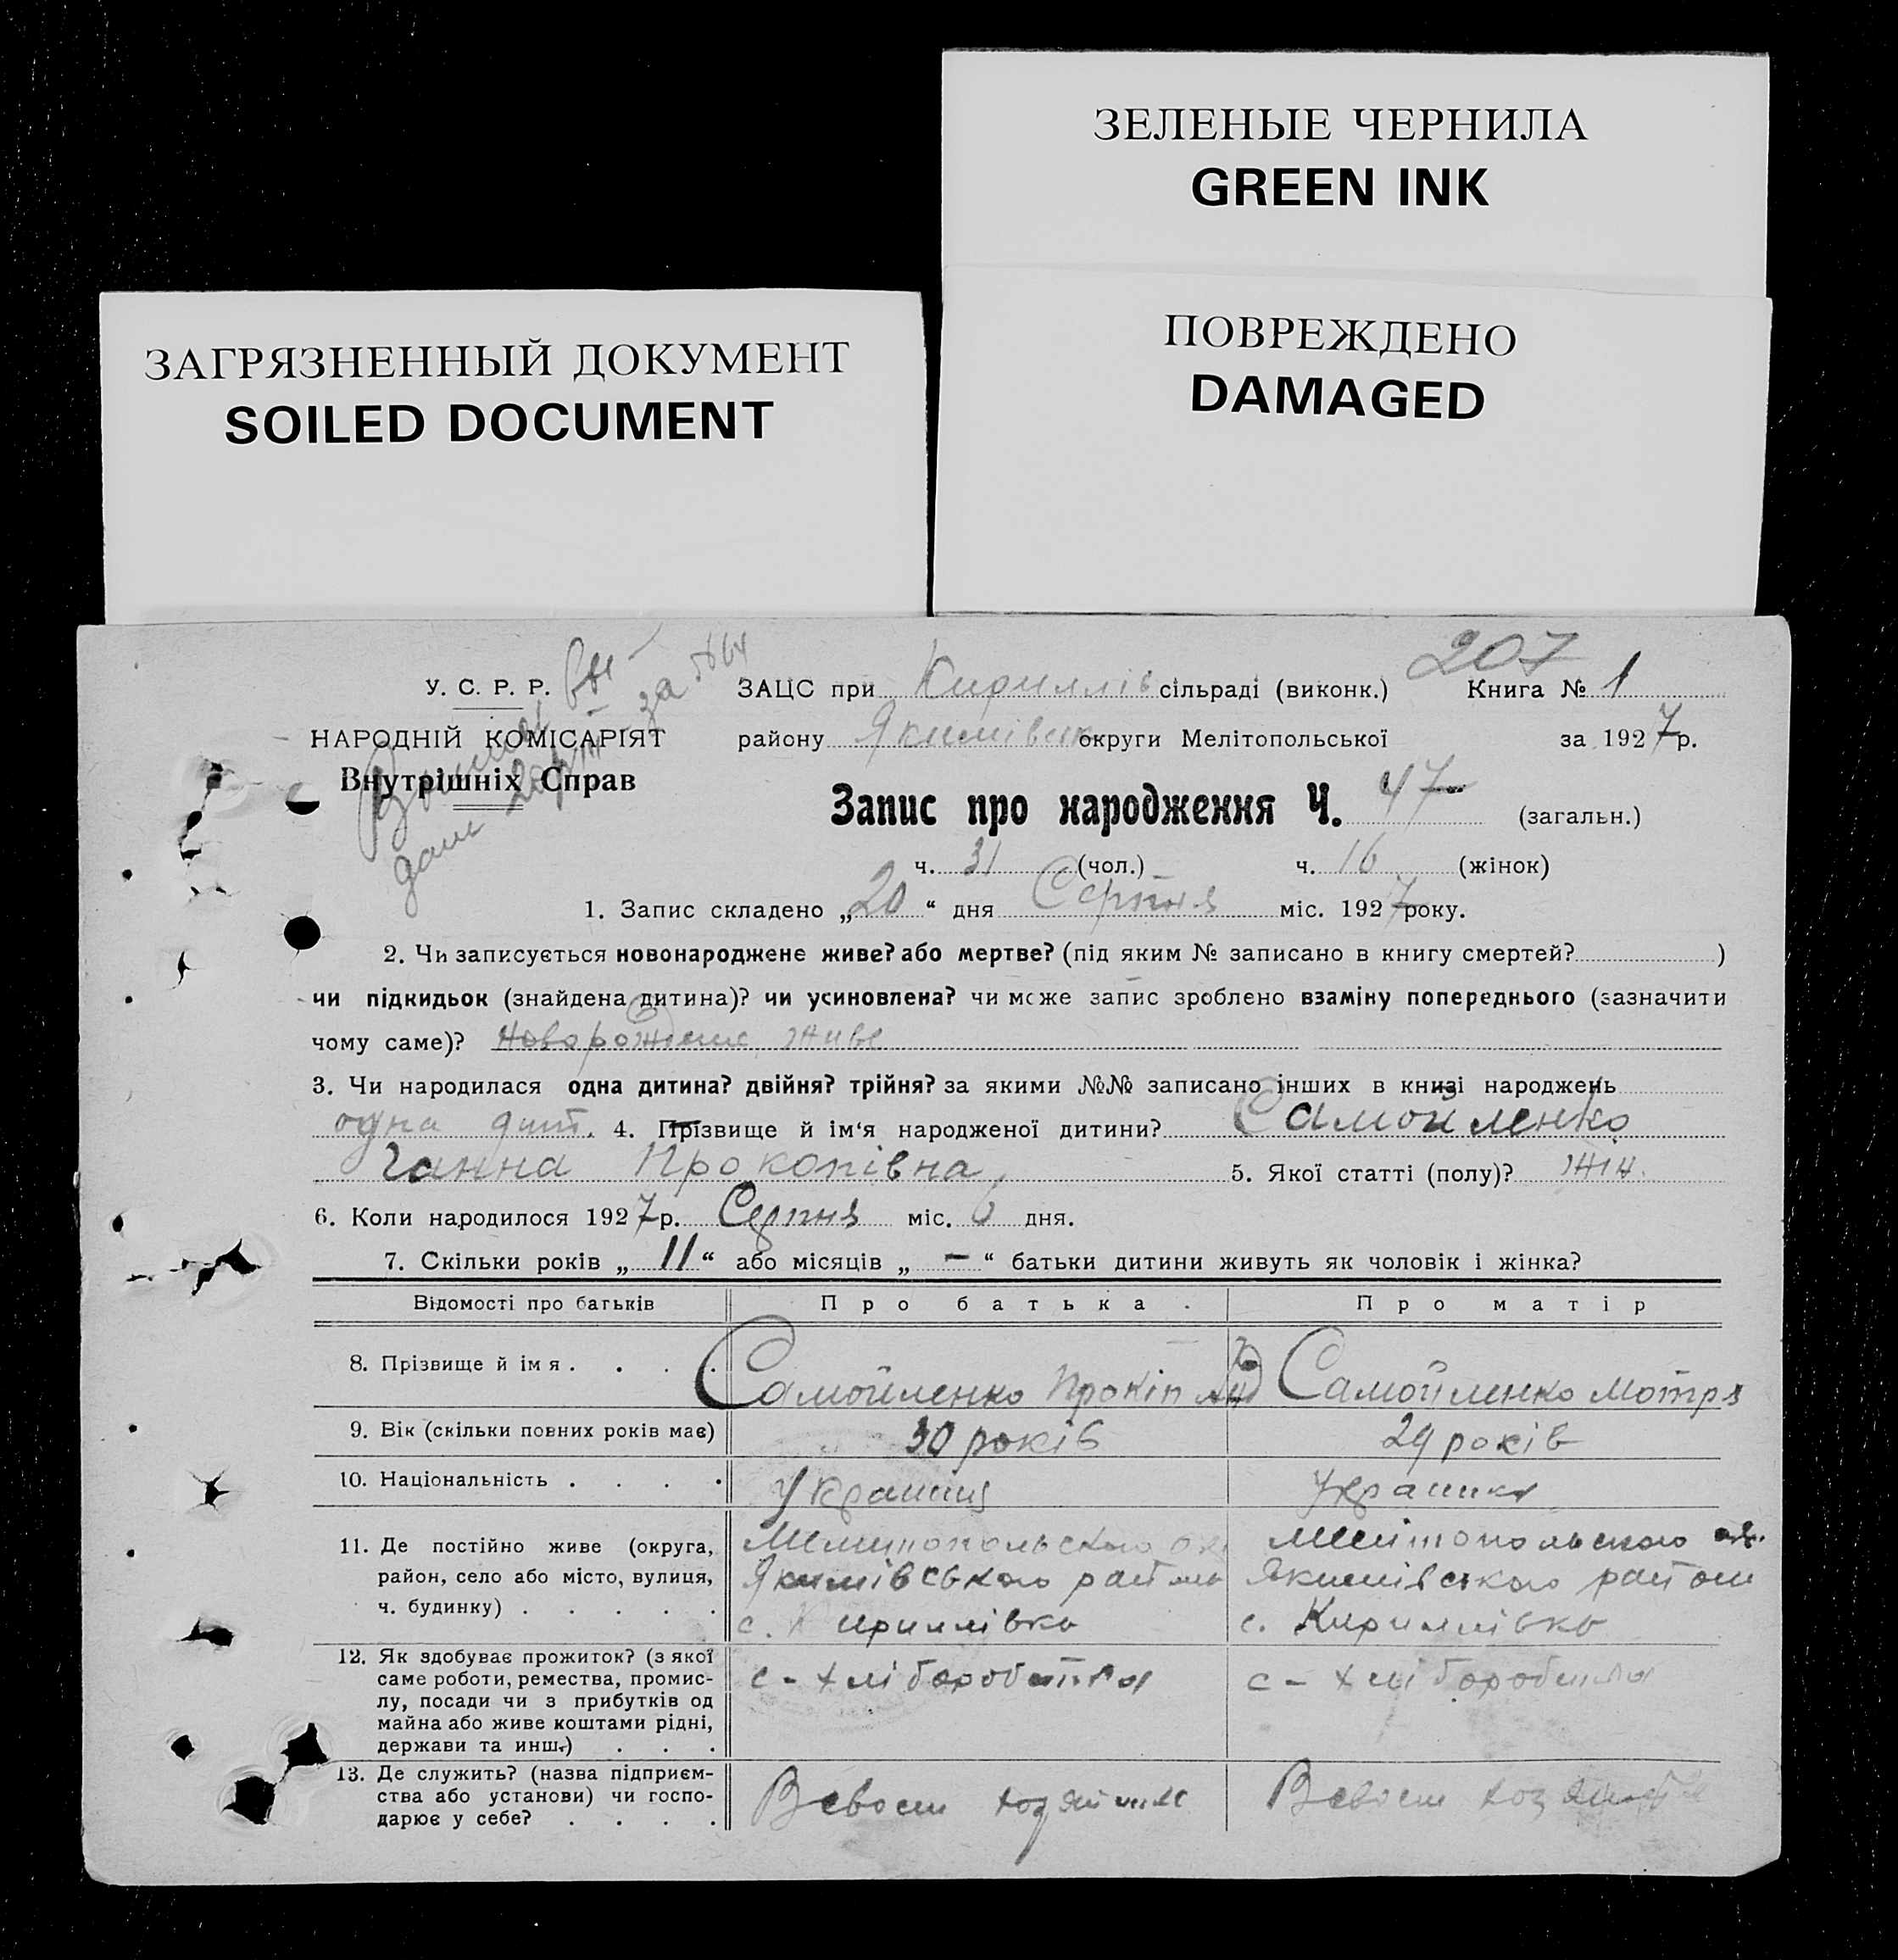 ЗЕЛЕНЫЕ ЧЕРНИЛА
GREEN INK
ПОВРЕЖДЕНО
DAMAGED
ЗАГРЯЗНЕННЫЙ ДОКУМЕНТ
SOILED DOCUMENT
207
У. С. Р. Р.
НАРОДНІЙ КОМІСАРІЯТ
Внутрішніх Справ
ЗАЦС при Кириллів сільраді (виконк.) Книга № 1
району Якимівськ округи Мелітопольської за 1927 р.
Запис про народження Ч. 47 (загальн.)
ч. 31 (чол.) ч. 16 (жінок)
1. Запис складено „20“ дня Серпня міс. 1927 року.
2. Чи записується новонароджене живе? або мертве? (під яким № записано в книгу смертей? )
чи підкидьок (знайдена дитина)? чи усиновлена? чи може запис зроблено взаміну попереднього (зазначити
чому саме)? живе
3. Чи народилася одна дитина? двійня? трійня? за якими №№ записано інших в книзі народжень
одна дит. 4. Прізвище й ім‘я народженої дитини? Самойленко
Ганна Прокопівна 5. Якої статті (полу)? жін.
6. Коли народилося 1927 р. Серпня міс. 6 дня.
7. Скільки років „11“ або місяців „-“ батьки дитини живуть як чоловік і жінка?
Відомості про батьків Про батька. Про матір
8. Прізвище й ім я . . . . Самойленко Прокіп Самойленко Мотря
9. Вік (скільки повних років має) 30 років 29 років
10. Національність . . . . Українка
11. Де постійно живе (округа, Мелитопольского Мелітопольского ок.
район, село або місто, вулиця, Якимівського району Якимівського району
ч. будинку) . . . . . с. Кириллівка с. Кириллівка
12. Як здобуває прожиток? (з якої
саме роботи, ремества, промис-
лу, посади чи з прибутків од
майна або живе коштами рідні,
держави та инш.) . . .
с - хліборобства с - хліборобства
13. Де служить? (назва підприєм-
ства або установи) чи госпо-
дарює у себе? . . . .
В своем В своем